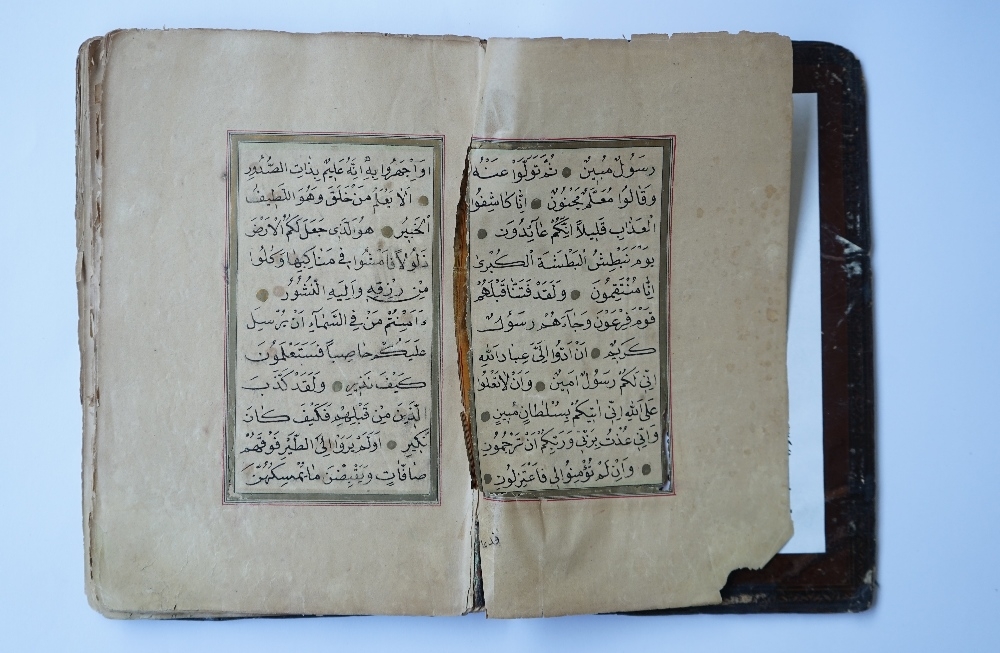 رَسُولٌ مُبِينٌ ثُمَّ تَوَلَّوْا عَنْهُ
وَقَالُوا مُعَلَّمٌ مَجْنُونٌ اِنَّا كَاشِفُوا
الْعَذَابِ قَلِيلًا اِنَّكُمْ عَائِدُونَ
يَوْمَ نَبْطِشُ الْبَطْشَةَ الْكُبْرٰى
اِنَّا مُنْتَقِمُونَ وَلَقَدْ فَتَنَّا قَبْلَهُمْ
قَوْمَ فِرْعَوْنَ وَجَاءَهُمْ رَسُولٌ
كَرِيمٌ اَنْ اَدُّوا اِلَىَّ عِبَادَ اللهِ
اِنِّى لَكُمْ رَسُولٌ اَمِينٌ وَاَنْ لَا تَعْلُوا
عَلَى اللهِ اِنِّى اٰتِيكُمْ بِسُلْطَانٍ مُبِينٍ
وَاِنِّى عُذْتُ بِرَبِّى وَرَبِّكُمْ اَنْ تَرْجُمُونِ
وَاِنْ لَمْ تُؤْمِنُوا لِى فَاعْتَزِلُونِ
فدعا
اَوِ اجْهَرُوا بِهِ اِنَّهُ عَلِيمٌ بِذَاتِ الصُّدُورِ
اَلَا يَعْلَمُ مَنْ خَلَقَ وَهُوَ اللَّطِيفُ
الْخَبِيرُ هُوَ الَّذِى جَعَلَ لَكُمُ الْاَرْضَ
ذَلُولًا فَامْشُوا فِى مَنَاكِبِهَا وَكُلُوا
مِنْ رِزْقِهِ وَاِلَيْهِ النُّشُورُ
ءَاَمِنْتُمْ مَنْ فِى السَّمَاءِ اَنْ يُرْسِلَ
عَلَيْكُمْ حَاصِبًا فَسَتَعْلَمُونَ
كَيْفَ نَذِيرِ وَلَقَدْ كَذَّبَ
الَّذِينَ مِنْ قَبْلِهِمْ فَكَيْفَ كَانَ
نَكِيرِ اَوَلَمْ يَرَوْا اِلَى الطَّيْرِ فَوْقَهُمْ
صَافَّاتٍ وَيَقْبِضْنَ مَا يُمْسِكُهُنَّ